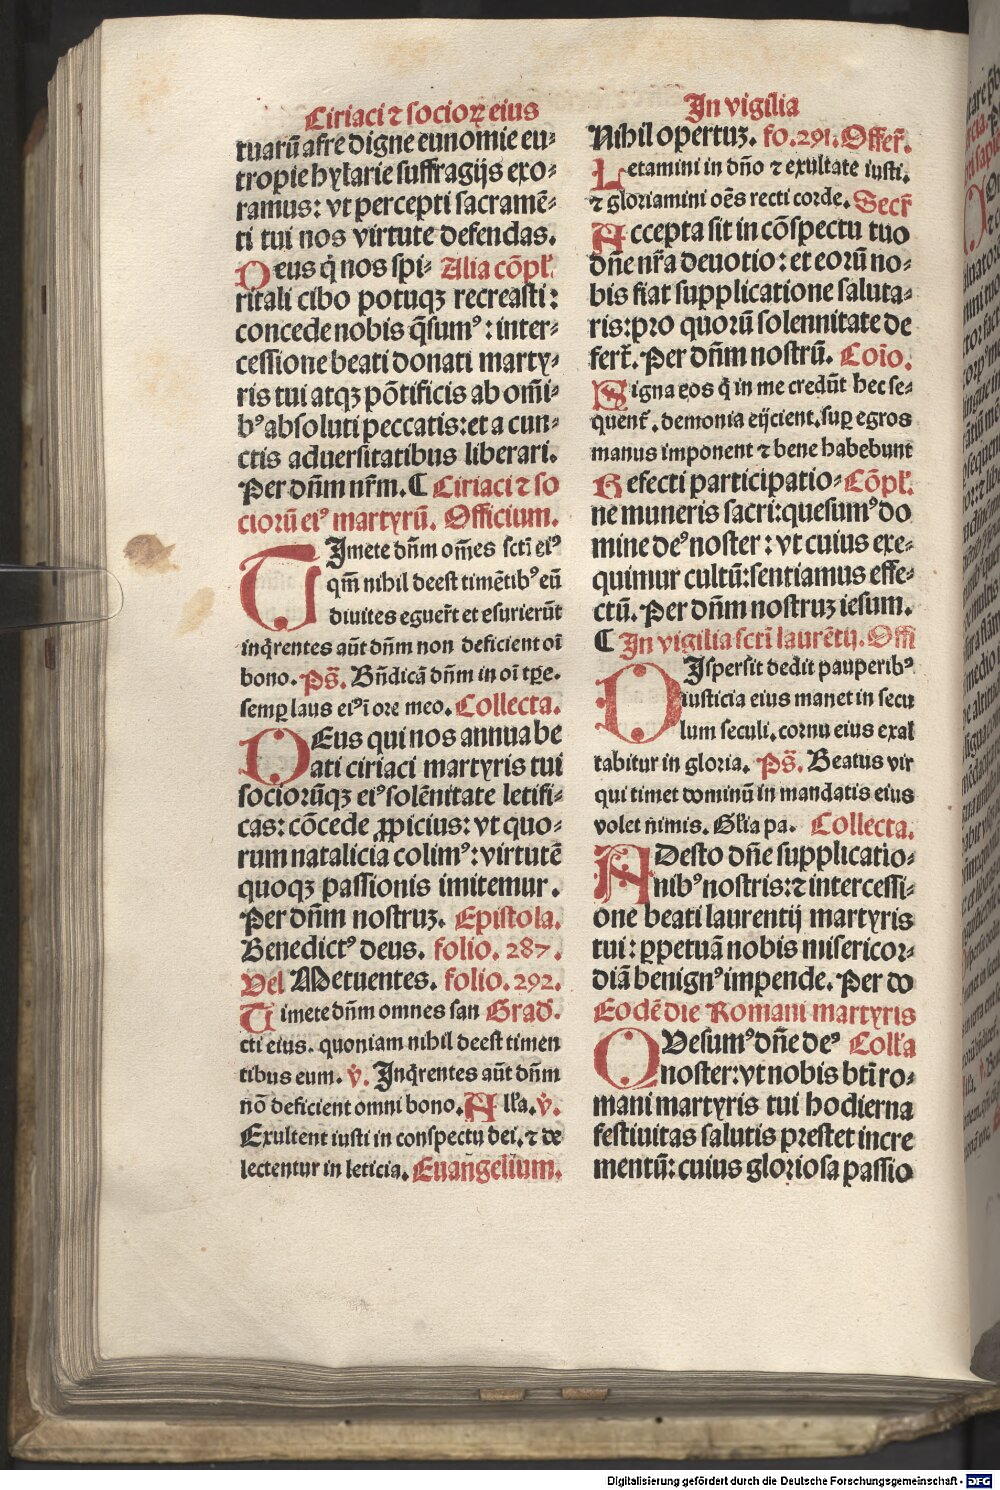 Ciriaci ⁊ socioꝝ eius
tuarū afre digne eunomie eu⸗
tropie hylarie suffragijs exo⸗
ramus: vt percepti sacramē⸗
ti tui nos virtute defendas.
Deus q̇ nos spi⸗ Alia cōpl̄.
ritali cibo potuqꝫ recreasti:
concede nobis q̄sumꝰ: inter⸗
cessione beati donati marty⸗
ris tui atqꝫ pōtificis ab om̄i⸗
bꝰ absoluti peccatis: et a cun⸗
ctis aduersitatibus liberari.
Per dn̄m nr̄m. ¶ Ciriaci ⁊ so
ciorū eiꝰ martyrū. Officium.
TImete dn̄m om̄es sctī eiꝰ
qm̄ nihil deest timētibꝰ eū
diuites eguer̄t et esurierūt
inq̇rentes aūt dn̄m non deficient oī
bono. Ps̄. Bn̄dicā dn̄m in oī tꝑe.
semꝑ laus eiꝰ ī ore meo. Collecta.
DEus qui nos annua be
ati ciriaci martyris tui
sociorūqꝫ eiꝰ solēnitate letifi⸗
cas: cōcede ꝓpicius: vt quo⸗
rum natalicia colimꝰ: virtutē
quoqꝫ passionis imitemur.
Per dn̄m nostruꝫ. Epistola.
Benedictꝰ deus. folio. 287.
Vel Metuentes. folio. 292.
Timete dn̄m omnes san Grad̄.
cti eius. quoniam nihil deest timen
tibus eum. v̇. Inq̇rentes aūt dn̄m
nō deficient omni bono. All̄a. v̇.
Exultent iusti in conspectu dei. ⁊ de
lectentur in leticia. Euangelium.
In vigilia
Nihil opertuꝫ. fo. 291. Offer̄.
Letamini in dn̄o ⁊ exultate iusti.
⁊ gloriamini oēs recti corde. Secr̄
Accepta sit in cōspectu tuo
dn̄e nr̄a deuotio: et eorū no⸗
bis fiat supplicatione saluta⸗
ris: pro quorū solennitate de
fert̄. Per dn̄m nostrū. Coīo.
Signa eos q̇ in me credūt hec se⸗
quent̄. demonia eijcient. suꝑ egros
manus imponent ⁊ bene habebunt
Refecti participatio⸗ Cōpl̄.
ne muneris sacri: quesumꝰ do
mine deꝰ noster: vt cuius exe⸗
quimur cultū: sentiamus effe⸗
ctū. Per dn̄m nostruꝫ iesum.
¶ In vigilia sctī laurētij. Offī
DIspersit dedit pauperibꝰ
iusticia eius manet in secu
lum seculi. cornu eius exal
tabitur in gloria. Ps̄. Beatus vir
qui timet dominū in mandatis eius
volet nimis. Gl̄ia pa. Collecta.
ADesto dn̄e supplicatio⸗
nibꝰ nostris: ⁊ intercessi⸗
one beati laurentij martyris
tui: ꝑpetuā nobis misericor⸗
diā benignꝰ impende. Per do
Eodē die Romani martyris
QVesumꝰ dn̄e deꝰ Coll̄a
noster: vt nobis btī ro⸗
mani martyris tui hodierna
festiuitas salutis prestet incre
mentū: cuius gloriosa passio
Digitalisierung gefördert durch die Deutsche Forschungsgemeinschaft - DFG